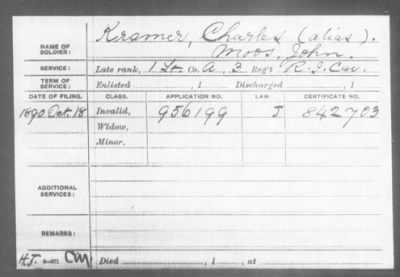 Kramer, Charles (alias).
NAME OF SOLDIER: Moos, John.
SERVICE: Late rank, 1 Lt. Co. A, 3 Reg't R. I. Cav.
TERM OF SERVICE: Enlisted , 1 Discharged , 1
DATE OF FILING. CLASS. APPLICATION NO. LAW. CERTIFICATE NO.
1890 Oct. 18 Invalid, 956199 J 842703
Widow,
Minor,
ADDITIONAL SERVICES:
REMARKS:
Died , 1 , at